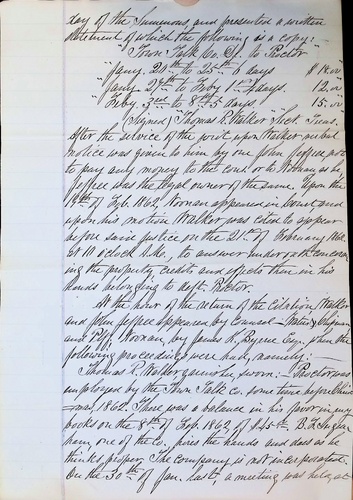 day of the Summons, and presented a written
statement of which the following is a copy:
"Town Talk Co. Dr. to Rector
"Jany. 20th to 25th 6 days $18.00
"Jany 27th to Feby 1st 4 days. 12.00
"Feby. 3rd to 8th 5 days 15.00
(Signed) Thomas R. Walker Sect. Treas.
After the service of the writ upon Walker
notice was given to him by one John Jeffree not
to pay any money to the court or to Noonan as he
Jeffree was the legal owner of the same. Upon the
18th of Feb. 1862, Noonan appeared in court and
upon his motion Walker was cited to appear
before said justice on the 21st of February 1862
at 10 o'clock A.M., to answer under oath concern-
ing the property, credits and effects then in his
hands belonging to deft. Rector.
At the hour of the return of the Citation, Walker
and John Jeffree appeared by counsel
and Plff. Noonan, by James R. Byrne Esq. when the
following proceedings were had, namely:—
Thomas R. Walker garnishee, sworn:— Rector was
employed by the Town Talk Co. some time before Christ-
mas, 1862. There was a balance in his favor in my
books on the 8th of Feb. 1862 of $45th. B. F.
ham, one of the Co. hires the hands and does as he
thinks proper. The company is not incorporated.
On the 30th of Jan. last, a meeting was held, at